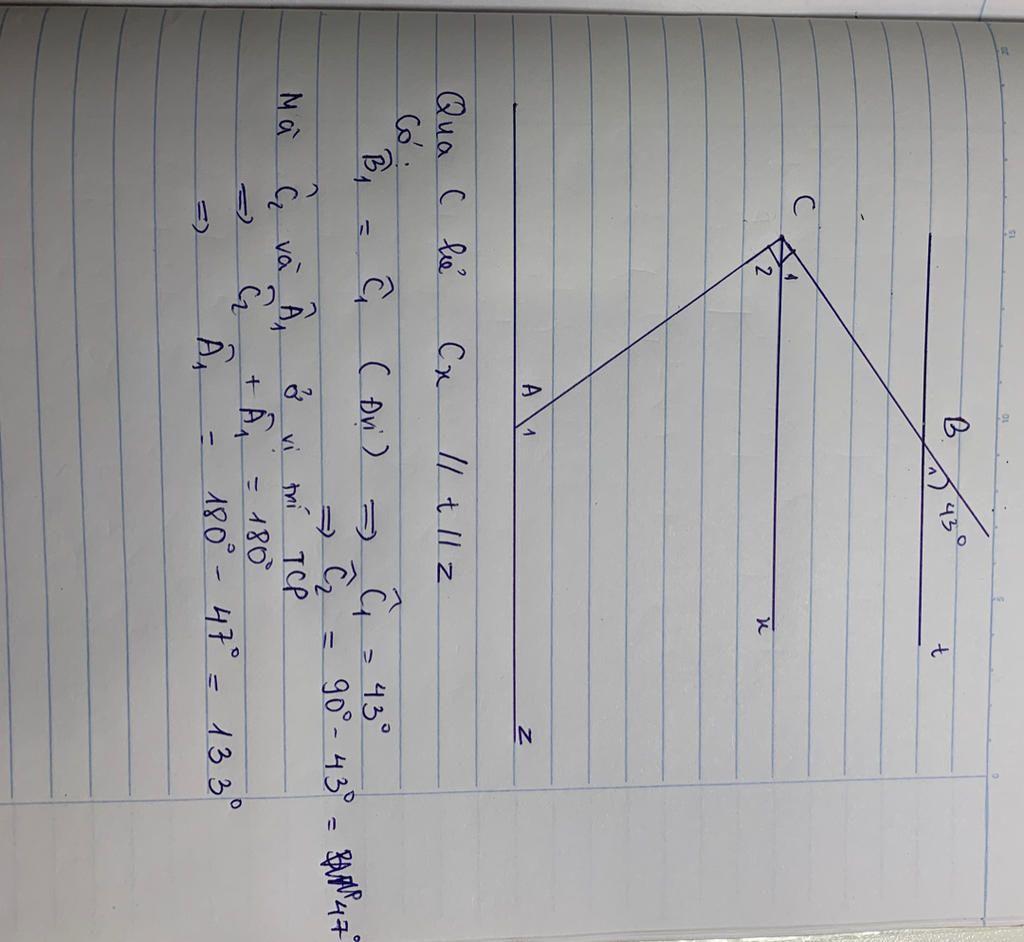 C
1
2
B
1) 43°
t
x
A
1
z
Qua C kẻ Cx // t // z
Có:
B̂₁ = Ĉ₁ (Đvị) => Ĉ₁ = 43°
=> Ĉ₂ = 90° - 43° = 47°
Mà Ĉ₂ và Â₁ ở vị trí TCP
=> Ĉ₂ + Â₁ = 180°
=> Â₁ = 180° - 47° = 133°